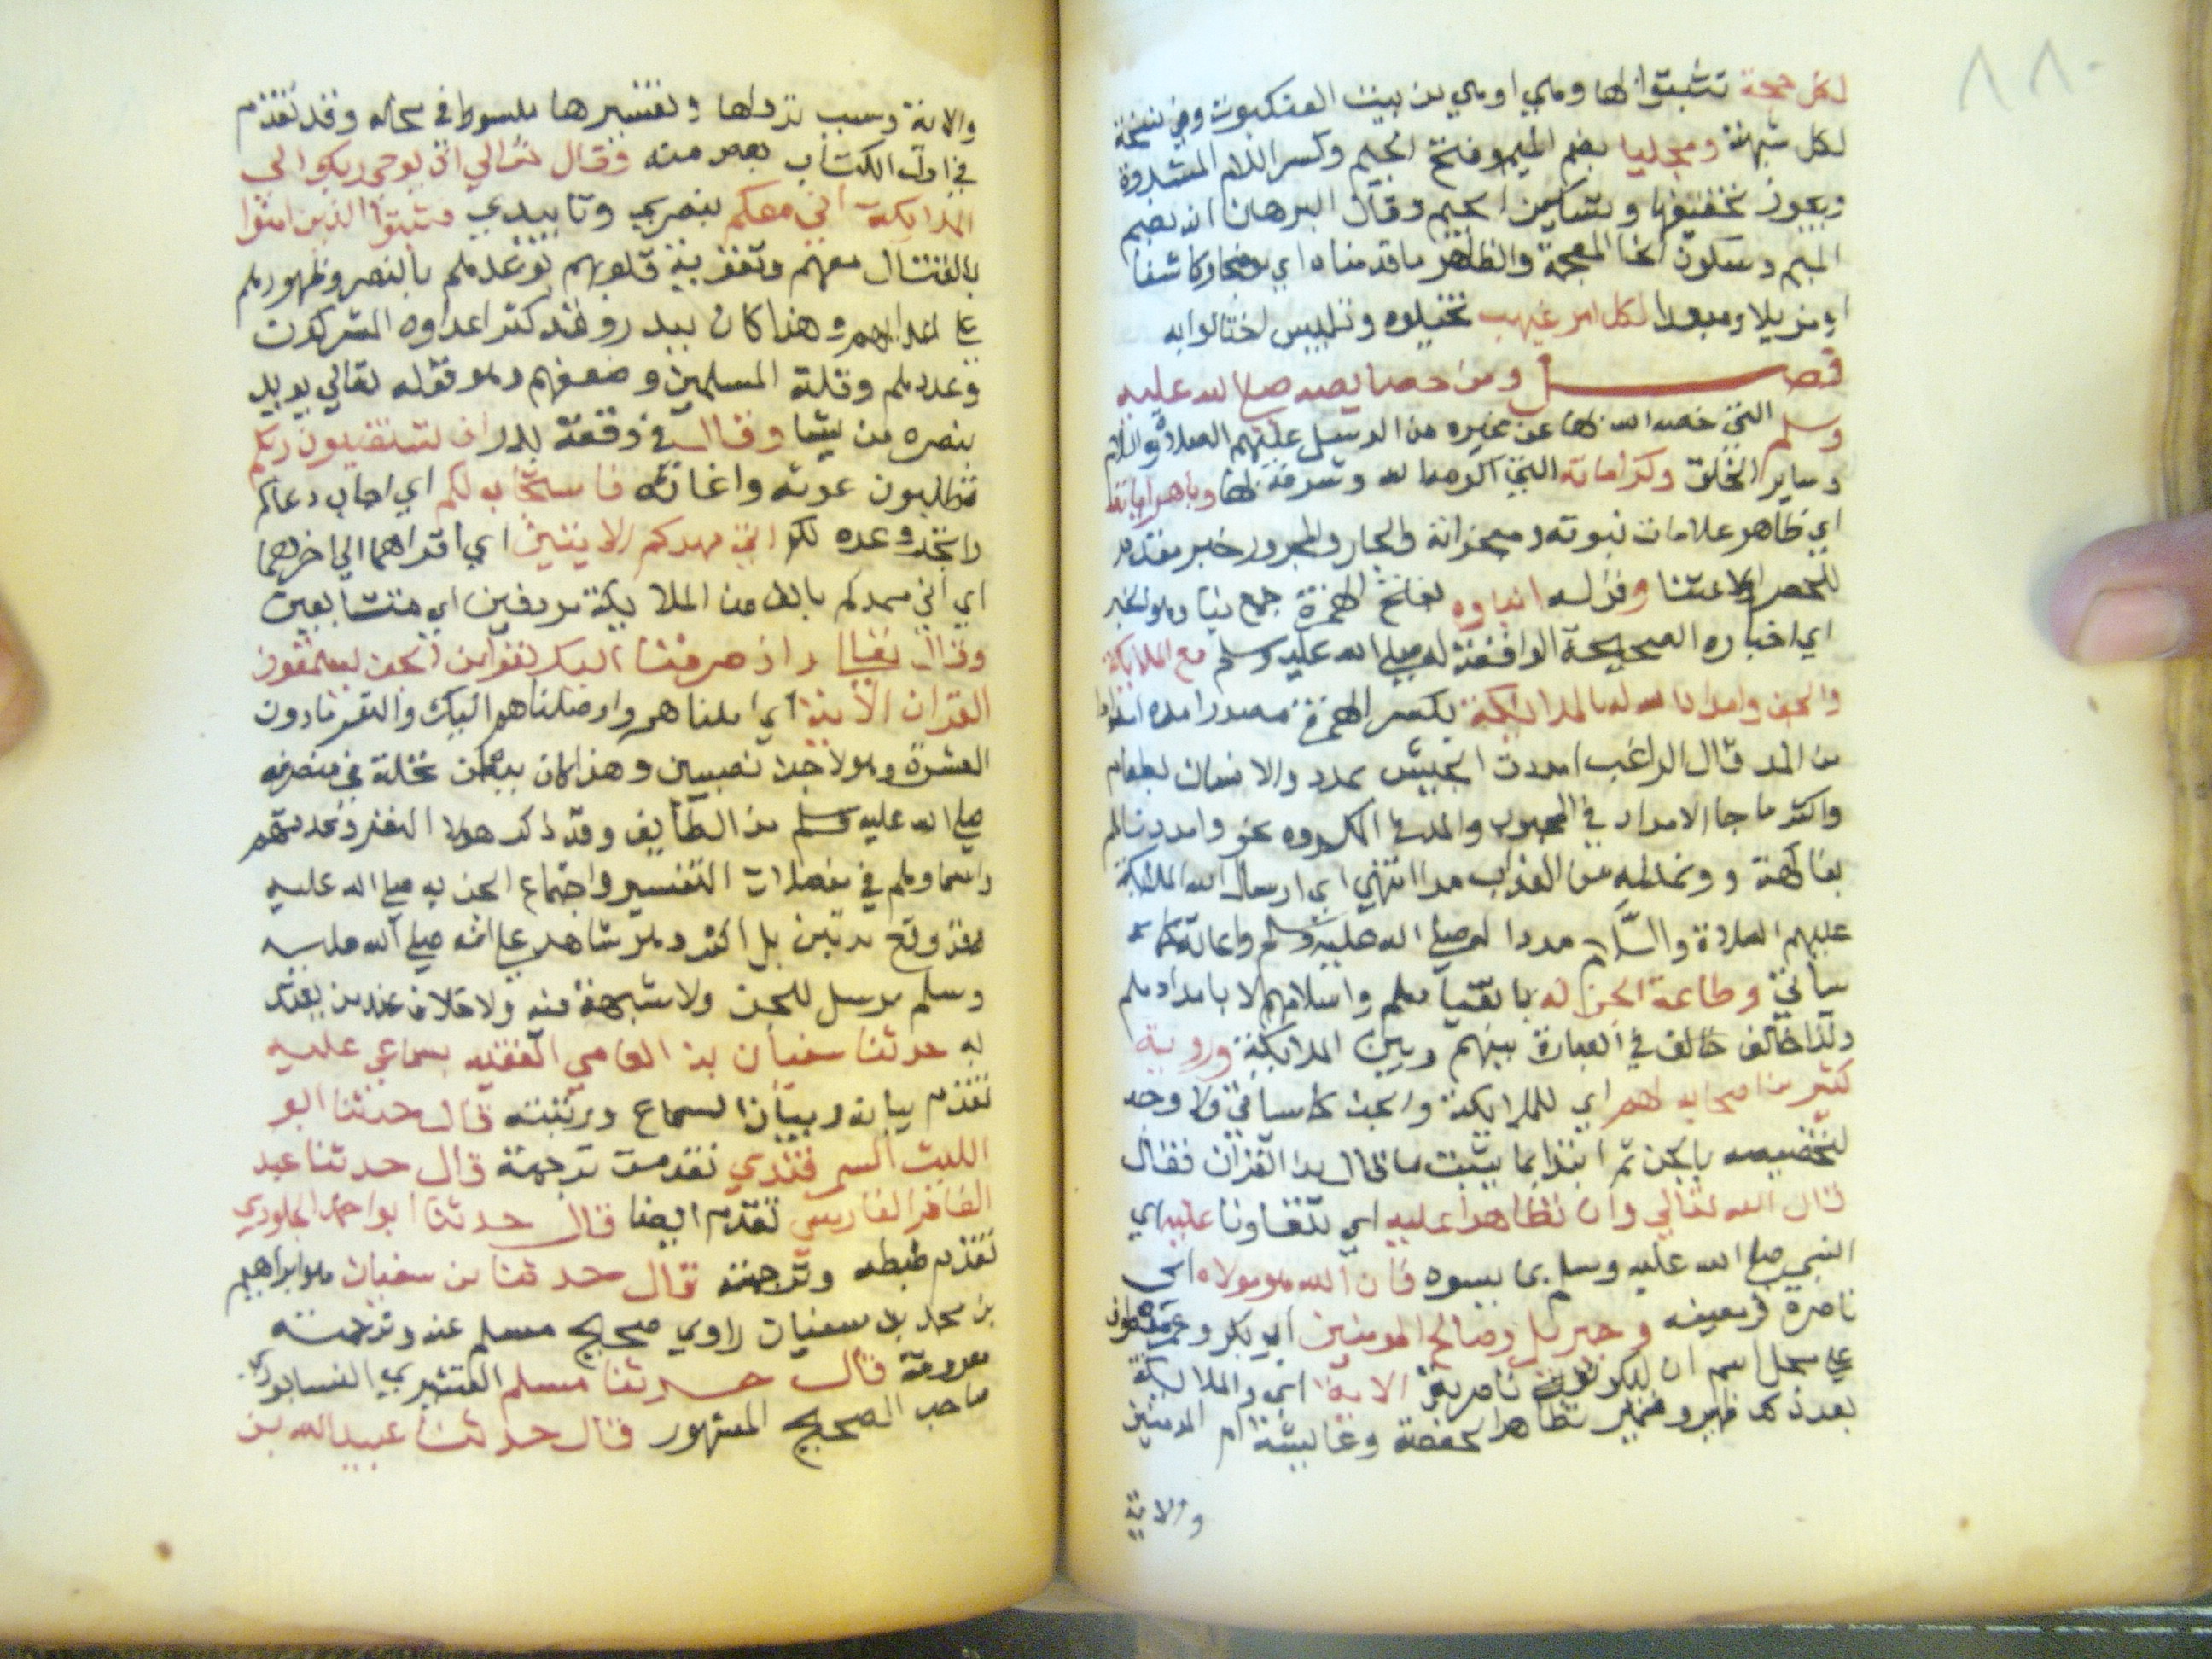 ٨٨٠
لكل حجة تشبثوا بها وهي اوهي من بيت العنكبوت وفي نسخة
لكل شبهة ومجليا بضم الميم وفتح الجيم وكسر اللام المشددة
ويجوز تخفيفها وتسكين الجيم وقال البرهان انه بضم
الميم وسكون الخا المعجمة والظاهر ما قدمناه اي موضحا وكاشفا
او مزيلا ومبعدا لكل امر غيهب تخيلوه وتلبيس اختالوا به
فصل ومن خصايصه صلى الله عليه
وسلم التي خصه الله بها عن غيره من الرسل عليهم الصلاة والسلام
وساير الخلق وكراماته التي اكرمه الله وشرفه بها وباهر اياته
اي ظاهر علامات نبوته ومعجزاته والجار والمجرور خبر مقدم
للحصر والاعتنا وقوله انباوه بفتح الهمزة جمع نبا وهو الخبر
اي اخباره الصحيحة الواقعة له صلى الله عليه وسلم مع الملايكة
والجن وامداد الله له بالملايكة بكسر الهمزة مصدر امده امدادا
من المد قال الراغب امددت الجيش بمدد والانسان بطعام
واكثر ما جا الامداد في المحبوب والمد في المكروه نحو وامددناهم
بفاكهة و ونمد له من العذاب مدا انتهى اي ارسال الله الملايكة
عليهم الصلاة والسلام مددا له صلى الله عليه وسلم واعانة كما
سياتي وطاعة الجن له بانقيادهم واسلامهم لا بامدادهم
ولذا خالف في العبارة بينهم وبين الملايكة وروية
كثير من اصحابه لهم اي للملايكة والجن كما سياتي ولا وجه
لتخصيصه بالجن ثم ابتدا بما يثبت ما قال من القران فقال
قال الله تعالي وان تظاهرا عليه اي تتعاونا عليه اي
النبي صلى الله عليه وسلم بما يسوه فان الله هو مولاه اي
ناصره ومعينه وجبريل وصالح المومنين ابو بكر وعمر
على محل اسم ان ليكونون ناصريه الاية اي والملايكة
بعد ذلك ظهير وضمير تظاهرا لحفصة وعايشة ام المومنين
والاية
والاية وسبب نزولها وتفسيرها مبسوط في محله وقد تقدم
في اول الكتاب بعض منه وقال تعالي اذ يوحي ربك الى
الملايكة اني معكم بنصري وتاييدي فثبتوا الذين امنوا
بالقتال معهم وتقوية قلوبهم بوعدهم بالنصر وظهورهم
على اعدايهم وهذا كان ببدر وقد كثر اعداوه المشركون
وعددهم وقلة المسلمين وضعفهم وهو قوله تعالي يويد
بنصره من يشا وقال في وقعة بدر اذ تستغيثون ربكم
تطلبون عونه واغاثته فاستجاب لكم اي اجاب دعاكم
وانجز وعده لكم اني ممدكم الايتين اي اقراهما الي اخرهما
اي اني ممدكم بالف من الملايكة مردفين اي متتابعين
وقال تعالي واذ صرفنا اليك نفرا من الجن يستمعون
القران الاية اي املناهم واوصلناهم اليك والنفر مادون
العشرة وهولا جن نصيبين وهذا كان ببطن نخلة في منصرفه
صلى الله عليه وسلم من الطايف وقد ذكر هولا النفر وعدتهم
واسماوهم في مفصلات التفسير واجتماع الجن به صلى الله عليه
فقد وقع مرتين بل اكثر وهو شاهد على انه صلى الله عليه
وسلم مرسل للجن ولا شبهة فيه ولا خلاف عند من يعتد
به حدثنا سفيان بن العاصي الفقيه بسماعي عليه
تقدم بيانه وبيان السماع ورتبته قال حدثنا ابو
الليث السمرقندي تقدمت ترجمته قال حدثنا عبد
الغافر الفارسي تقدم ايضا قال حدثنا ابو احمد الجلودي
تقدم ضبطه وترجمته قال حدثنا بن سفيان هو ابراهيم
بن محمد بن سفيان راوي صحيح مسلم عنه وترجمته
معروفة قال حدثنا مسلم القشيري النيسابوري
صاحب الصحيح المشهور قال حدثنا عبيد الله بن